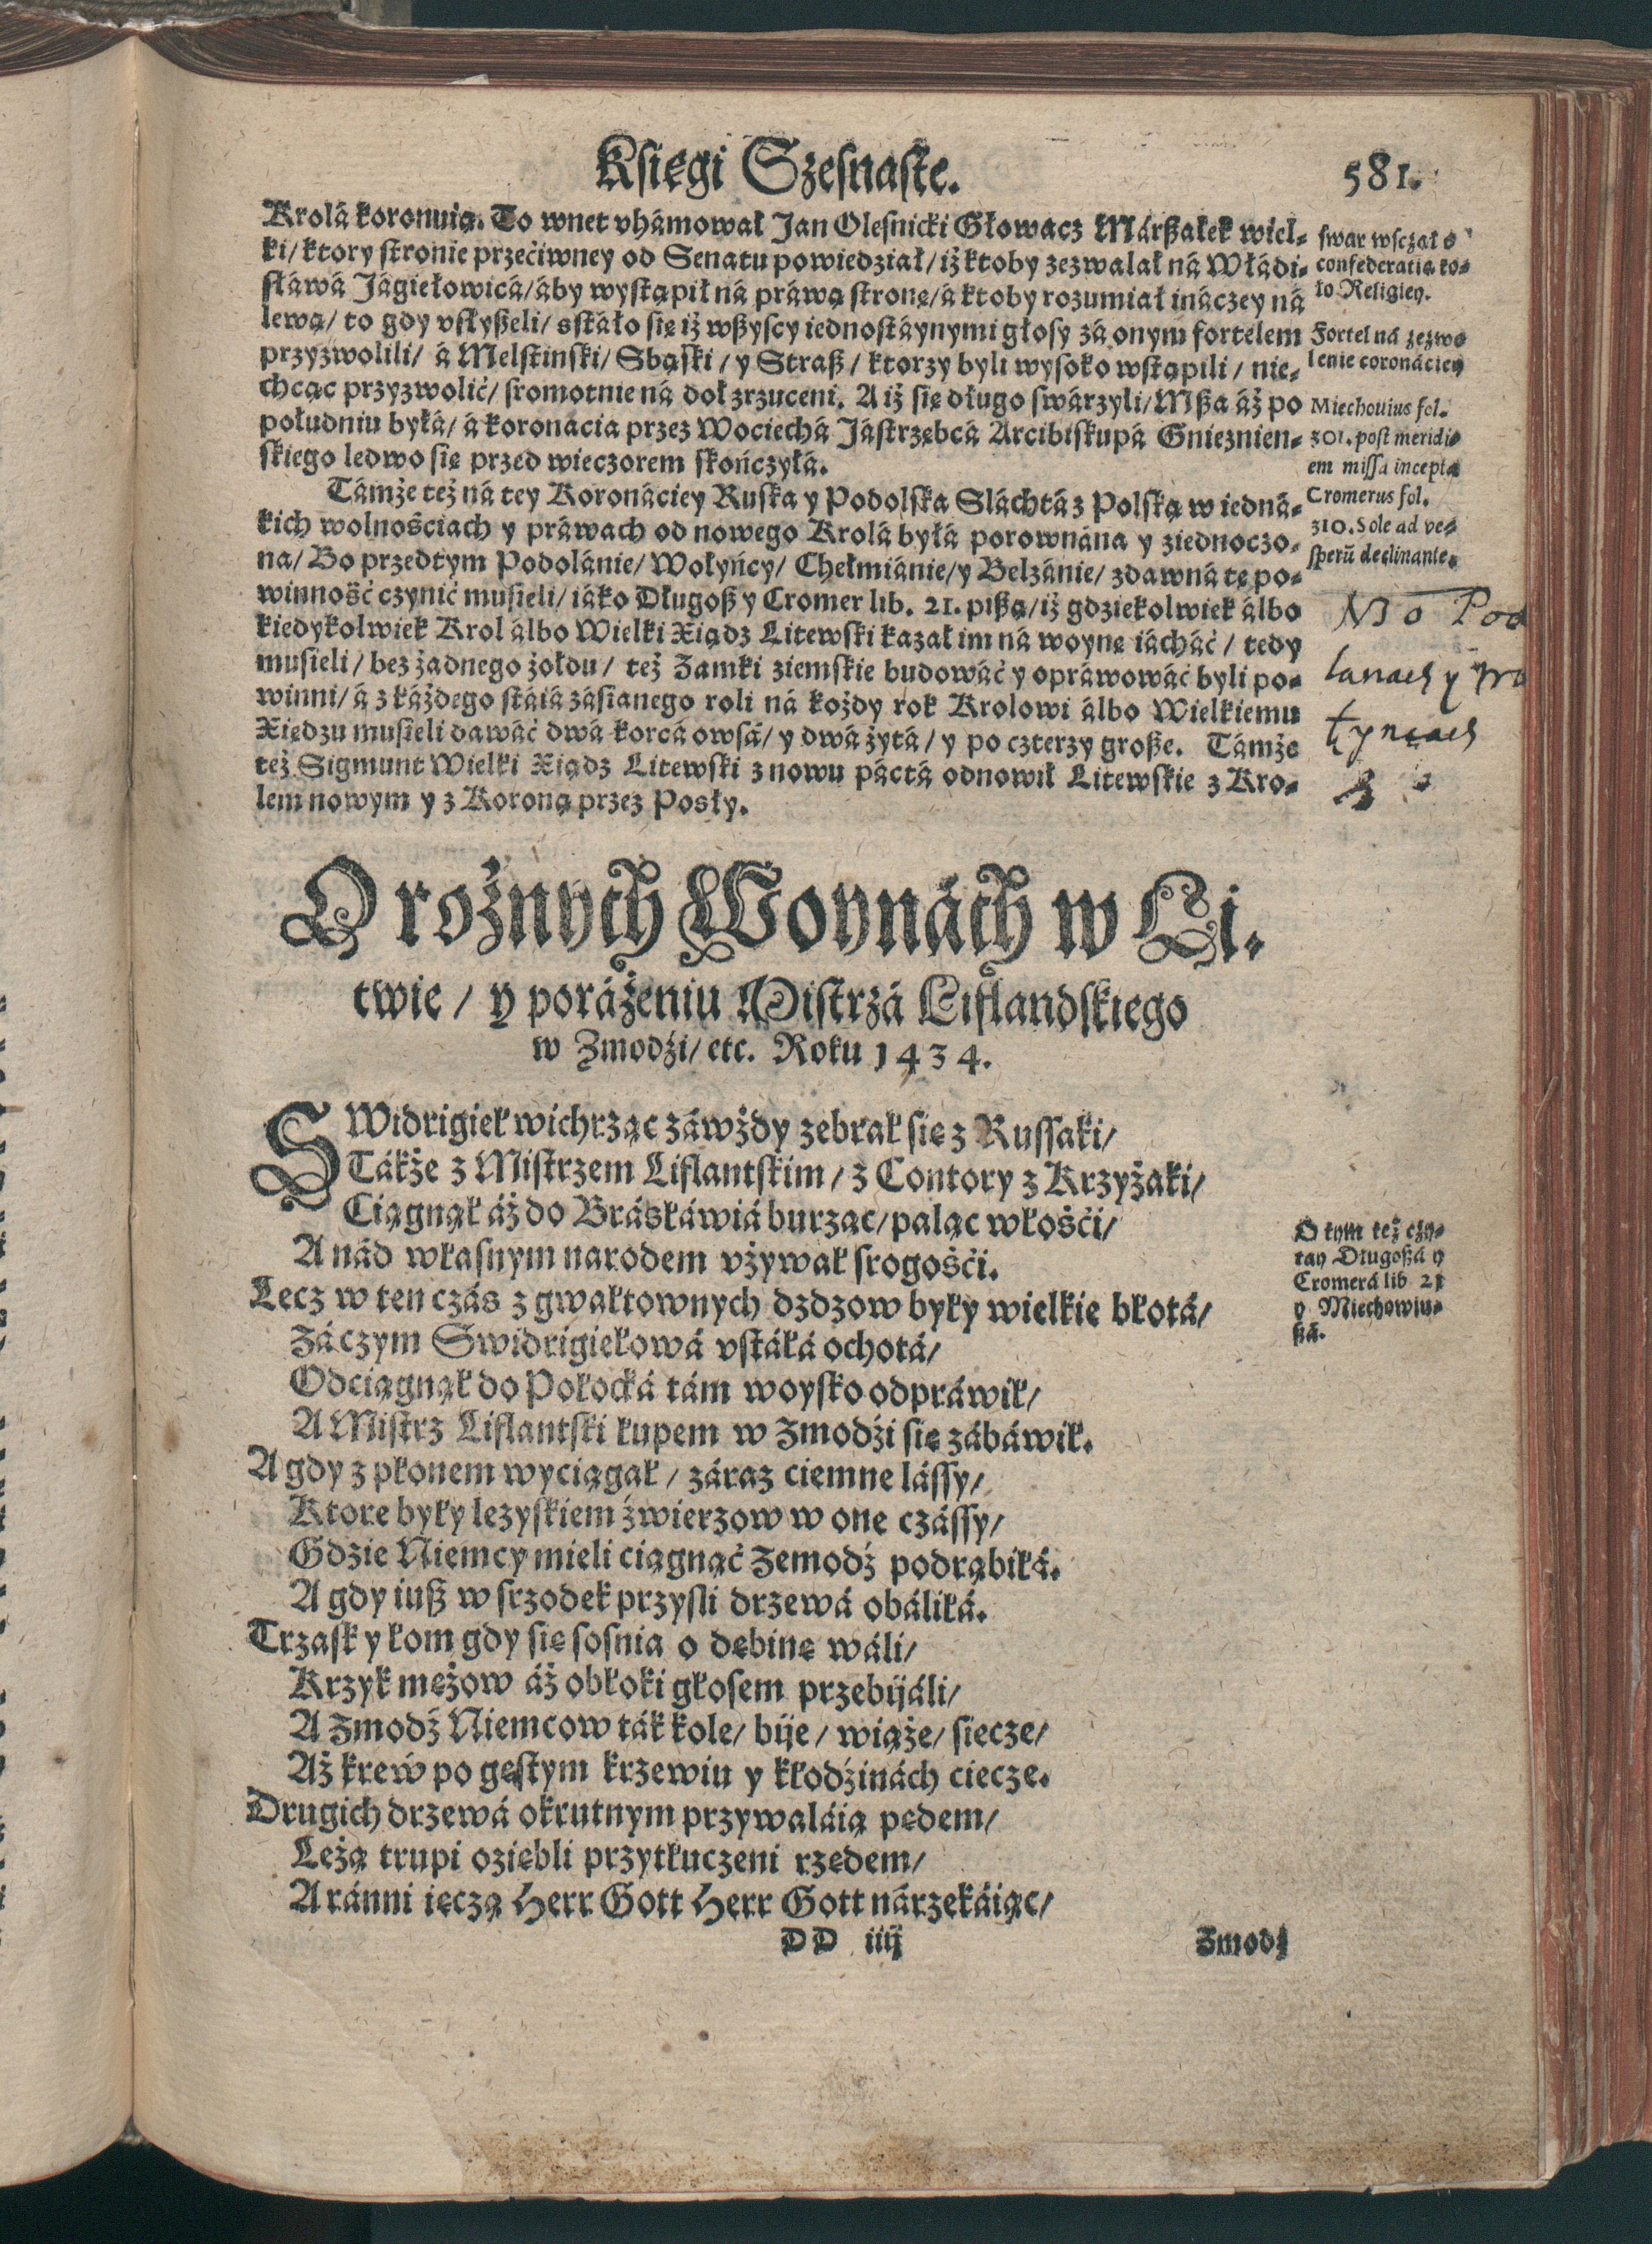 Księgi Szesnaste.
581.
Krolá koronuią. To wnet vhámował Jan Olesnicki Głowacz Márßałek wiel-
ki/ ktory stronie przećiwney od Senatu powiedział/ iż ktoby zezwalał ná Włádi-
słáwá Jágiełowicá/ áby wystąpił ná práwą stronę/ á ktoby rozumiał ináczey ná
lewą/ to gdy vsłyßeli/ sstáło się iż wßyscy iednostáynymi głosy zá onym fortelem
przyzwolili/ á Melstinski/ Sbąski/ y Straß/ ktorzy byli wysoko wstąpili/ nie-
chcąc przyzwolić/ sromotnie ná doł zrzuceni. A iż się długo swárzyli/ Mßa áż po
południu byłá/ á koronácia przez Wociechá Jástrzębcá Arcibiskupá Gnieznien-
skiego ledwo się przed wieczorem skończyłá.
Támże też ná tey Koronáciey Ruska y Podolska Sláchtá z Polską w iedná-
kich wolnościach y práwach od nowego Krolá byłá porownána y ziednoczo-
na/ Bo przedtym Podolánie/ Wołyńcy/ Chełmiánie/ y Belzánie/ zdawná tę po-
winność czynić musieli/ iáko Długoß y Cromer lib. 21. pißą/ iż gdziekolwiek álbo
kiedykolwiek Krol álbo Wielki Xiądz Litewski kazał im ná woynę iácháć/ tedy
musieli/ bez żadnego żołdu/ też Zamki ziemskie budowáć y opráwowáć byli po-
winni/ á z káżdego stáiá zásianego roli ná kożdy rok Krolowi álbo Wielkiemu
Xiędzu musieli dawáć dwá korcá owsá/ y dwá żytá/ y po czterzy große. Támże
też Sigmunt Wielki Xiądz Litewski znowu páctá odnowił Litewskie z Kro-
lem nowym y z Koroną przez Posły.
swar wsczął o
confederatią ko-
ło Religiey.
Fortel ná zezwo
lenie coronáciey
Miechouius fol.
301. post meridi-
em missa incepta
Cromerus fol.
310. Sole ad ve-
sperũ declinante.
O rożnych Woynách w Li-
twie/ y poráżeniu Mistrzá Liflandskiego
w Zmodźi/ etc. Roku 1434.
SWidrigieł wichrząc záwżdy zebrał się z Russaki/
Tákże z Mistrzem Liflantskim/ z Contory z Krzyżaki/
Ciągnął áż do Brásłáwiá burząc/ paląc włośći/
A nád własnym narodem vżywał srogośći.
Lecz w ten czás z gwałtownych dzdzow były wielkie błotá/
Záczym Swidrigiełowá vstáłá ochotá/
Odciągnął do Połocká tám woysko odpráwił/
A Mistrz Liflantski łupem w Zmodźi się zábáwił.
A gdy z płonem wyciągał/ záraz ciemne lássy/
Ktore były lezyskiem źwierzow w one czássy/
Gdzie Niemcy mieli ciągnąć Zemodź podrąbiłá.
A gdy iuß w srzodek przysli drzewá obáliłá.
Trzask y łom gdy się sosnia o dębinę wáli/
Krzyk mężow áż obłoki głosem przebijáli/
A Zmodź Niemcow ták kole/ bije/ wiąże/ siecze/
Aż krew po gęstym krzewiu y kłodźinách ciecze.
Drugich drzewá okrutnym przywaláią pędem/
Leżą trupi oziębli przytłuczeni rzędem/
A ránni ięczą Herr Gott Herr Gott nárzekáiąc/
O tym też czy-
tay Długoßá y
Cromerá lib 21
y Miechowiu-
ßá.
DD iiij
Zmodź